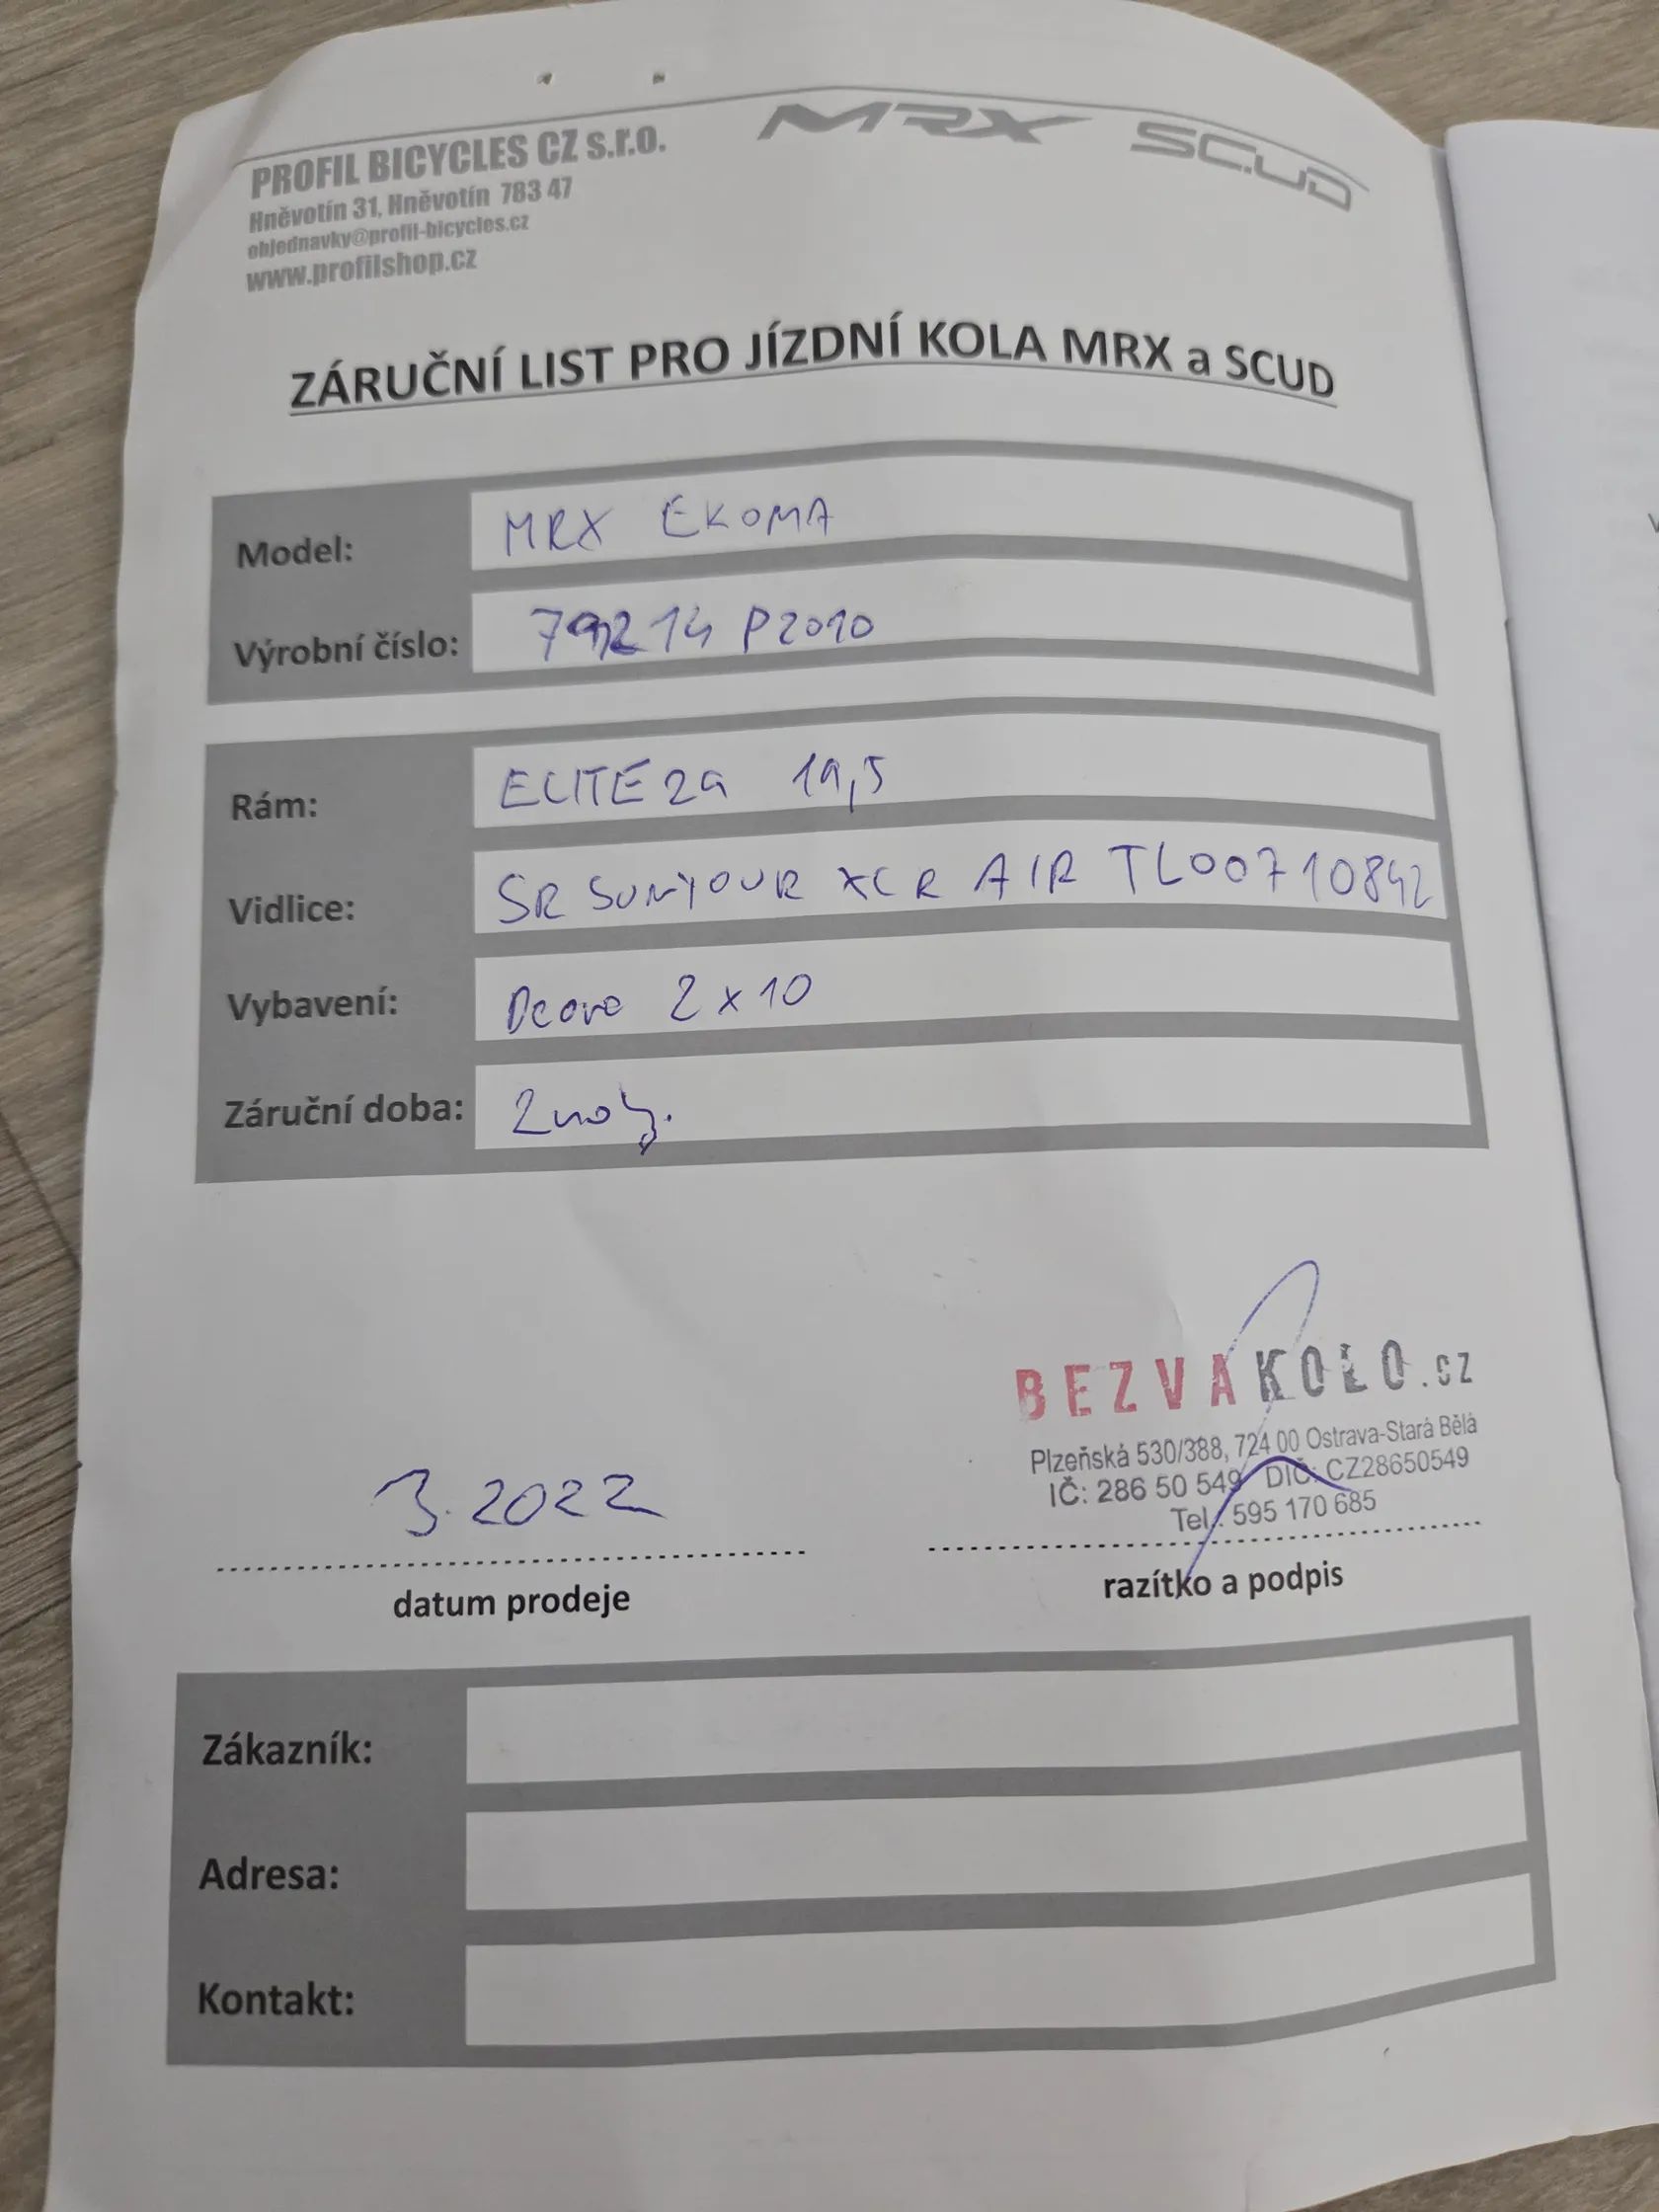 PROFIL BICYCLES CZ s.r.o.
MRX SCUD
Hněvotín 31, Hněvotín 783 47
objednavky@profil-bicycles.cz
www.profilshop.cz
ZÁRUČNÍ LIST PRO JÍZDNÍ KOLA MRX a SCUD
Model: MRX EKOMA
Výrobní číslo: 79214 P2010
Rám: ELITE 29 19,5
Vidlice: SR SUNTOUR XCR AIR TL00710842
Vybavení: Deore 2 x 10
Záruční doba: 2
BEZVAKOLO.cz
Plzeňská 530/388, 724 00 Ostrava-Stará Bělá
IČ: 286 50 549 DIČ: CZ28650549
Tel.: 595 170 685
3.2022
datum prodeje
razítko a podpis
Zákazník:
Adresa:
Kontakt: